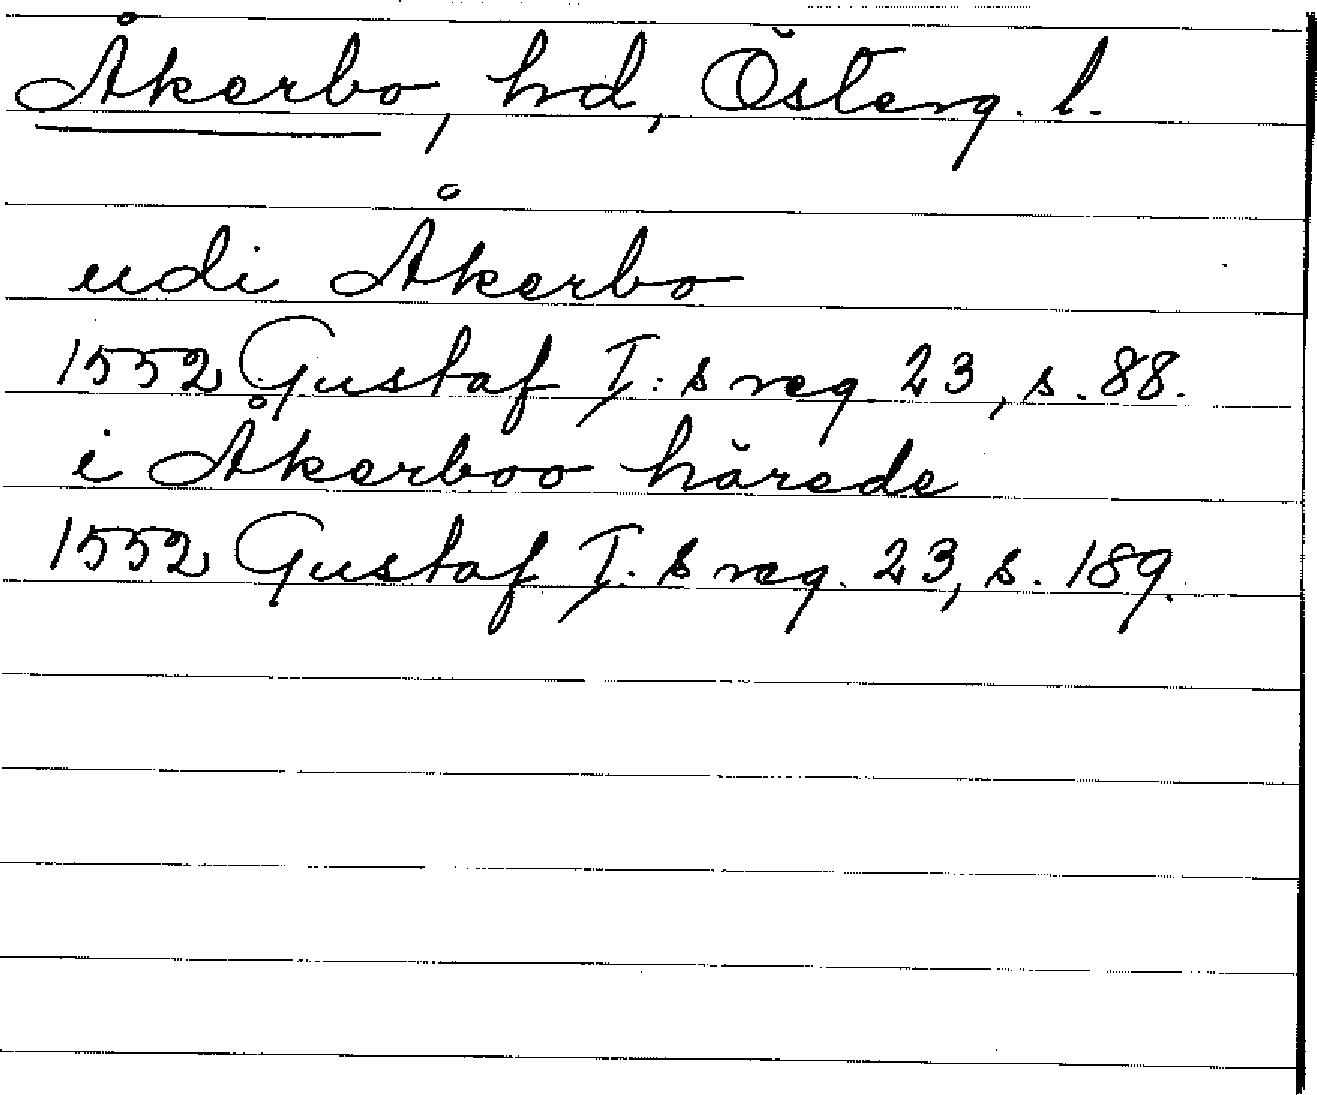 Åkerbo, hd, Österg. l.
udi Åkerbo
1552 Gustaf I:s reg. 23, s. 88.
i Åkerboo härede
1552 Gustaf I:s reg. 23, s. 189.